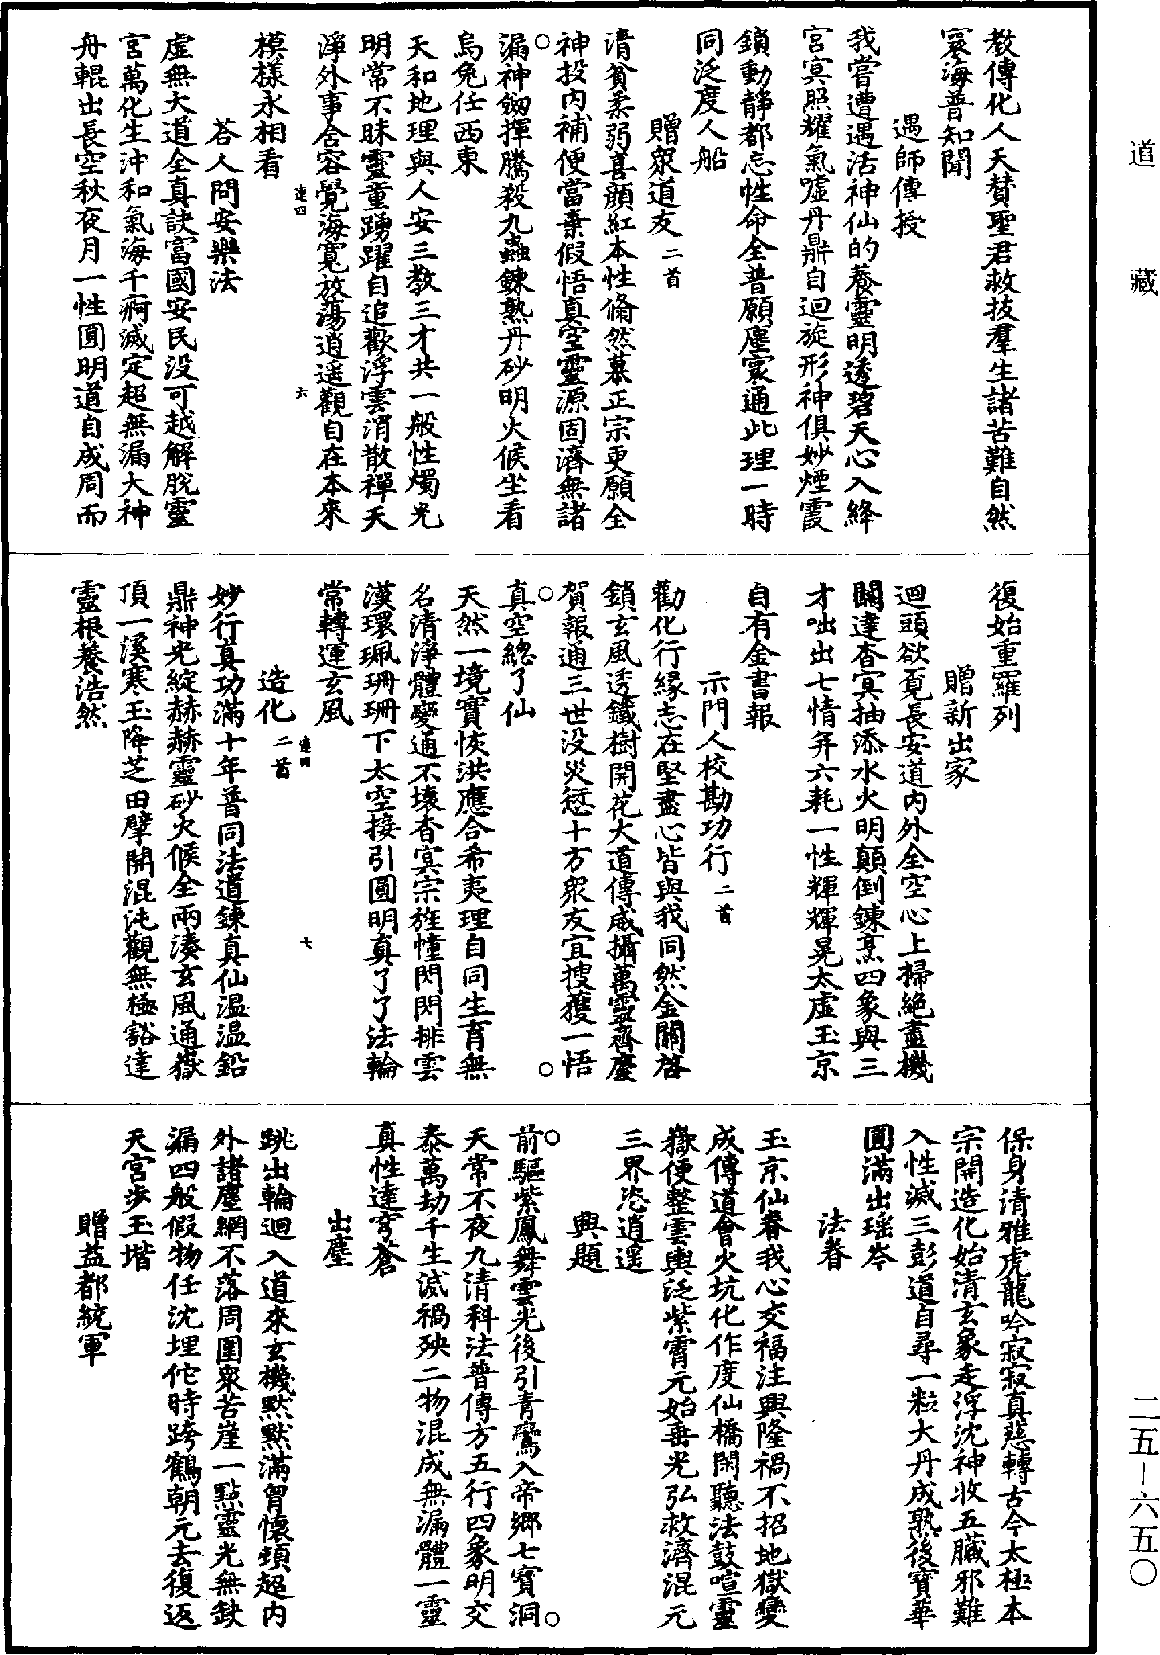 道藏
教傳化人天賛聖君救拔羣生諸苦難自然
寰海普知聞
遇師傳授
我嘗遭遇活神仙的養靈明透碧天心入絳
宮㝠照耀氣噓丹鼎自迴旋形神俱妙煙霞
鎖動靜都忘性命全普願塵寰通此理一時
同泛度人船
贈衆道友二首
清貧柔弱喜顏紅本性翛然慕正宗更願全
神投内補便當棄假悟真空靈源固濟無諸
漏神劒揮騰殺九蟲鍊熟丹砂明火候坐看
烏兔任西東
○
天和地理與人安三教三才共一般性燭光
明常不昧靈童踴躍自追歡浮雲消散禪天
淨外事含容覺海寬放蕩逍遥觀自在本來
模樣永相看
荅人問安樂法
虛無大道全真訣富國安民没可越解脫靈
宮萬化生沖和氣海千痾滅定超無漏大神
舟輥出長空秋夜月一性圓明道自成周而
復始重羅列
贈新出家
迴頭欲覓長安道内外全空心上掃絶盡機
關達杳㝠抽添水火明顛倒鍊烹四象與三
才咄出七情并六耗一性輝輝晃太虛玉京
自有金書報
示門人校勘功行二首
勸化行緣志在堅盡心皆與我同然金關啓
鎖玄風透鐵樹開花大道傳咸攝萬靈齊慶
賀報通三世没災愆十方衆友宜搜獲一悟
真空總了仙
○　○
天然一境實恢洪應合希夷理自同生育無
名清淨體變通不壞杳㝠宗旌幢閃閃排雲
漢環珮珊珊下太空接引圓明真了了法輪
常轉運玄風
造化二首
妙行真功滿十年普同法道鍊真仙温温鉛
鼎神光綻赫赫靈砂火候全兩湊玄風通嶽
頂一溪寒玉降芝田擘開混沌觀無極豁達
靈根養浩然
保身清雅虎龍吟寂寂真慈轉古今太極本
宗開造化始清玄象走浮沈神收五臟邪難
入性滅三彭道自尋一粒大丹成熟後寶華
圓滿出瑶岑
法眷
玉京仙眷我心交福注興隆禍不招地獄變
成傳道會火坑化作度仙橋閑聽法鼓喧靈
嶽便整雲輿泛紫霄元始垂光弘救濟混元
三界恣逍遥
興題
○　○
前驅紫鳳舞雲光後引青鸞入帝鄉七寶洞
天常不夜九清科法普傳方五行四象明交
泰萬劫千生滅禍殃二物混成無漏體一靈
真性達穹蒼
出塵
跳出輪迴入道來玄機默默滿胷懷頓超内
外諸塵網不落周圍衆苦崖一點靈光無缺
漏四般假物任沈埋佗時跨鶴朝元去復返
天宮步玉堦
贈益都統軍
二五―六五〇